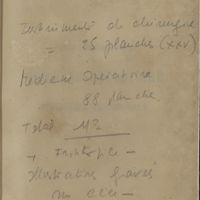 Instruments de chirurgie
= 25 planches (XXV)
Médecine Opératoire
88 planches
Total 113
→ Frontispice —
illustrations gravés